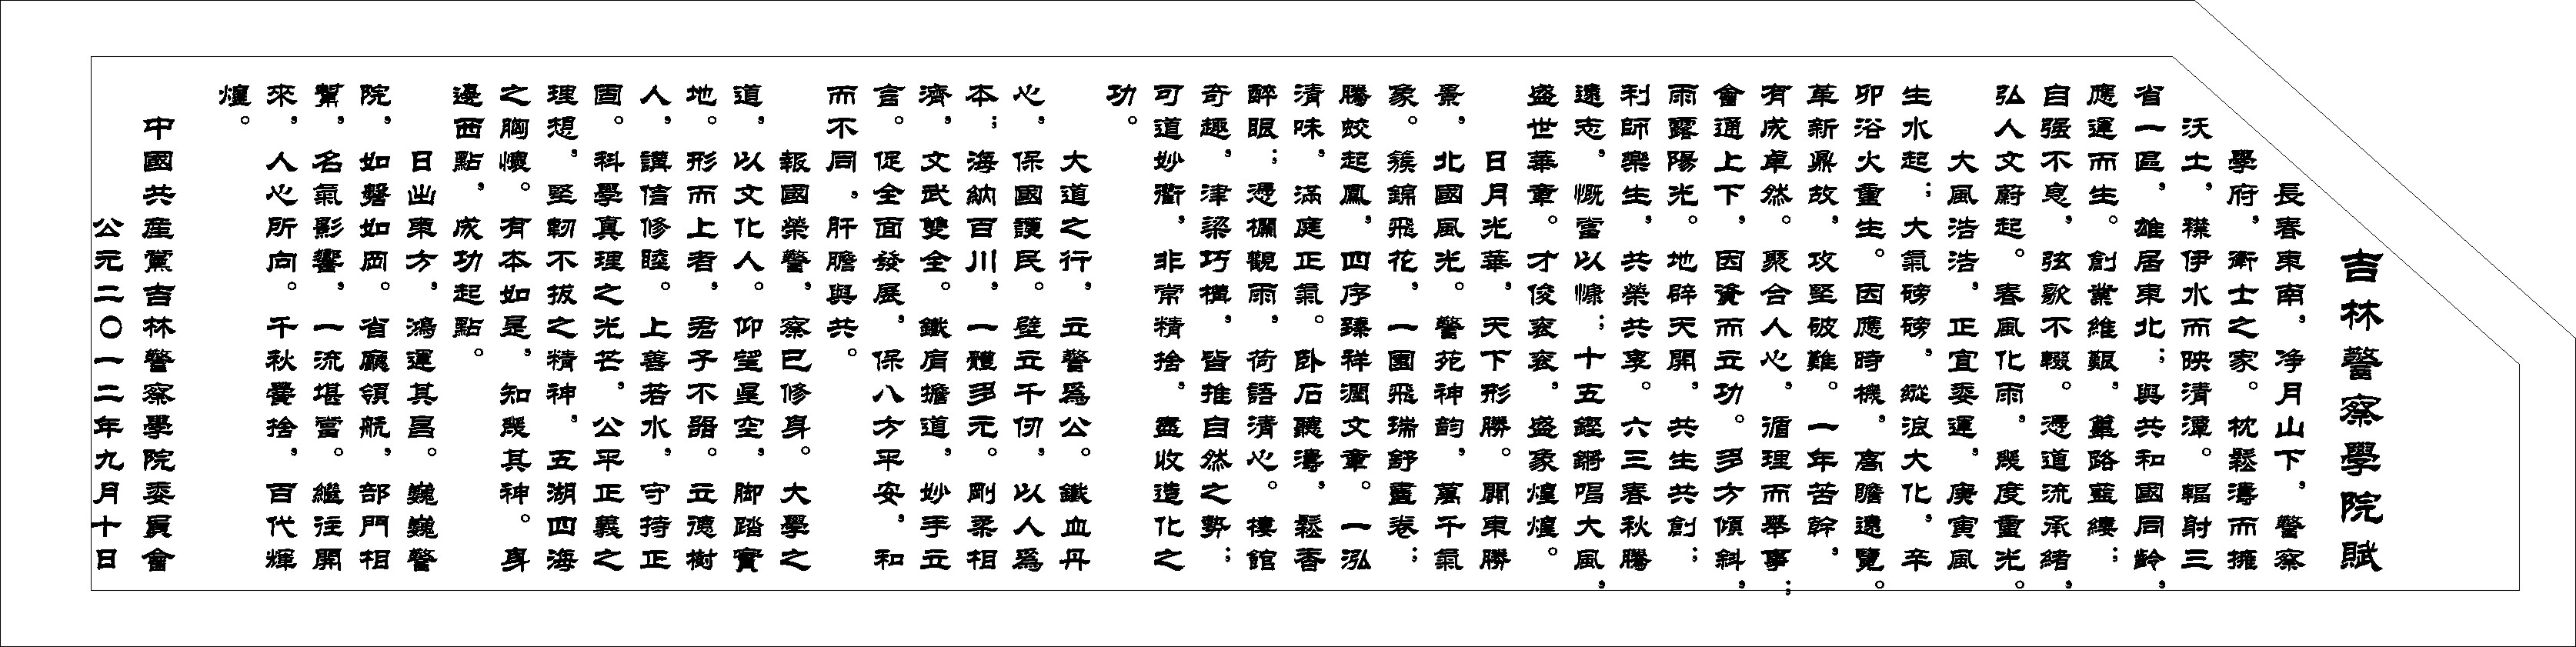 吉林警察學院賦
長春東南，净月山下，警察
學府，衛士之家。枕鬆濤而擁
沃土，襟伊水而映清潭。輻射三
省一區，雄居東北；與共和國同齡，
應運而生。創業維艱，蓽路藍縷；
自强不息，弦歌不輟。憑道流承緒，
弘人文蔚起。春風化雨，幾度重光。
大風浩浩，正宜委運，庚寅風
生水起；大氣磅磅，縱浪大化，辛
卯浴火重生。因應時機，高瞻遠覽。
革新鼎故，攻堅破難。一年苦幹，
有成卓然。聚合人心，循理而舉事；
會通上下，因資而立功。多方傾斜，
雨露陽光。地辟天開，共生共創；
利師樂生，共榮共享。六三春秋騰
遠志，慨當以慷；十五鏗鏘唱大風，
盛世華章。才俊衮衮，盛象煌煌。
日月光華，天下形勝。開東勝
景，北國風光。警苑神韵，萬千氣
象。簇錦飛花，一園飛瑞舒畫卷；
騰蛟起鳳，四序臻祥潤文章。一泓
清味，滿庭正氣。卧石聽濤，鬆香
醉眼；憑欄觀雨，荷語清心。樓館
奇趣，津梁巧構，皆推自然之勢；
可道妙衢，非常精捨，盡收造化之
功。
大道之行，立警爲公。鐵血丹
心，保國護民。壁立千仞，以人爲
本；海納百川，一體多元。剛柔相
濟，文武雙全。鐵肩擔道，妙手立
言。促全面發展，保八方平安，和
而不同，肝膽與共。
報國榮警，察已修身。大學之
道，以文化人。仰望星空，脚踏實
地。形而上者，君子不器。立德樹
人，講信修睦。上善若水，守持正
固。科學真理之光芒，公平正義之
理想，堅韌不拔之精神，五湖四海
之胸懷。有本如是，知幾其神。身
邊西點，成功起點。
日出東方，鴻運其昌。巍巍警
院，如磐如岡。省廳領航，部門相
幫，名氣影響，一流堪當。繼往開
來，人心所向。千秋黌捨，百代輝
煌。
中國共産黨吉林警察學院委員會
公元二〇一二年九月十日